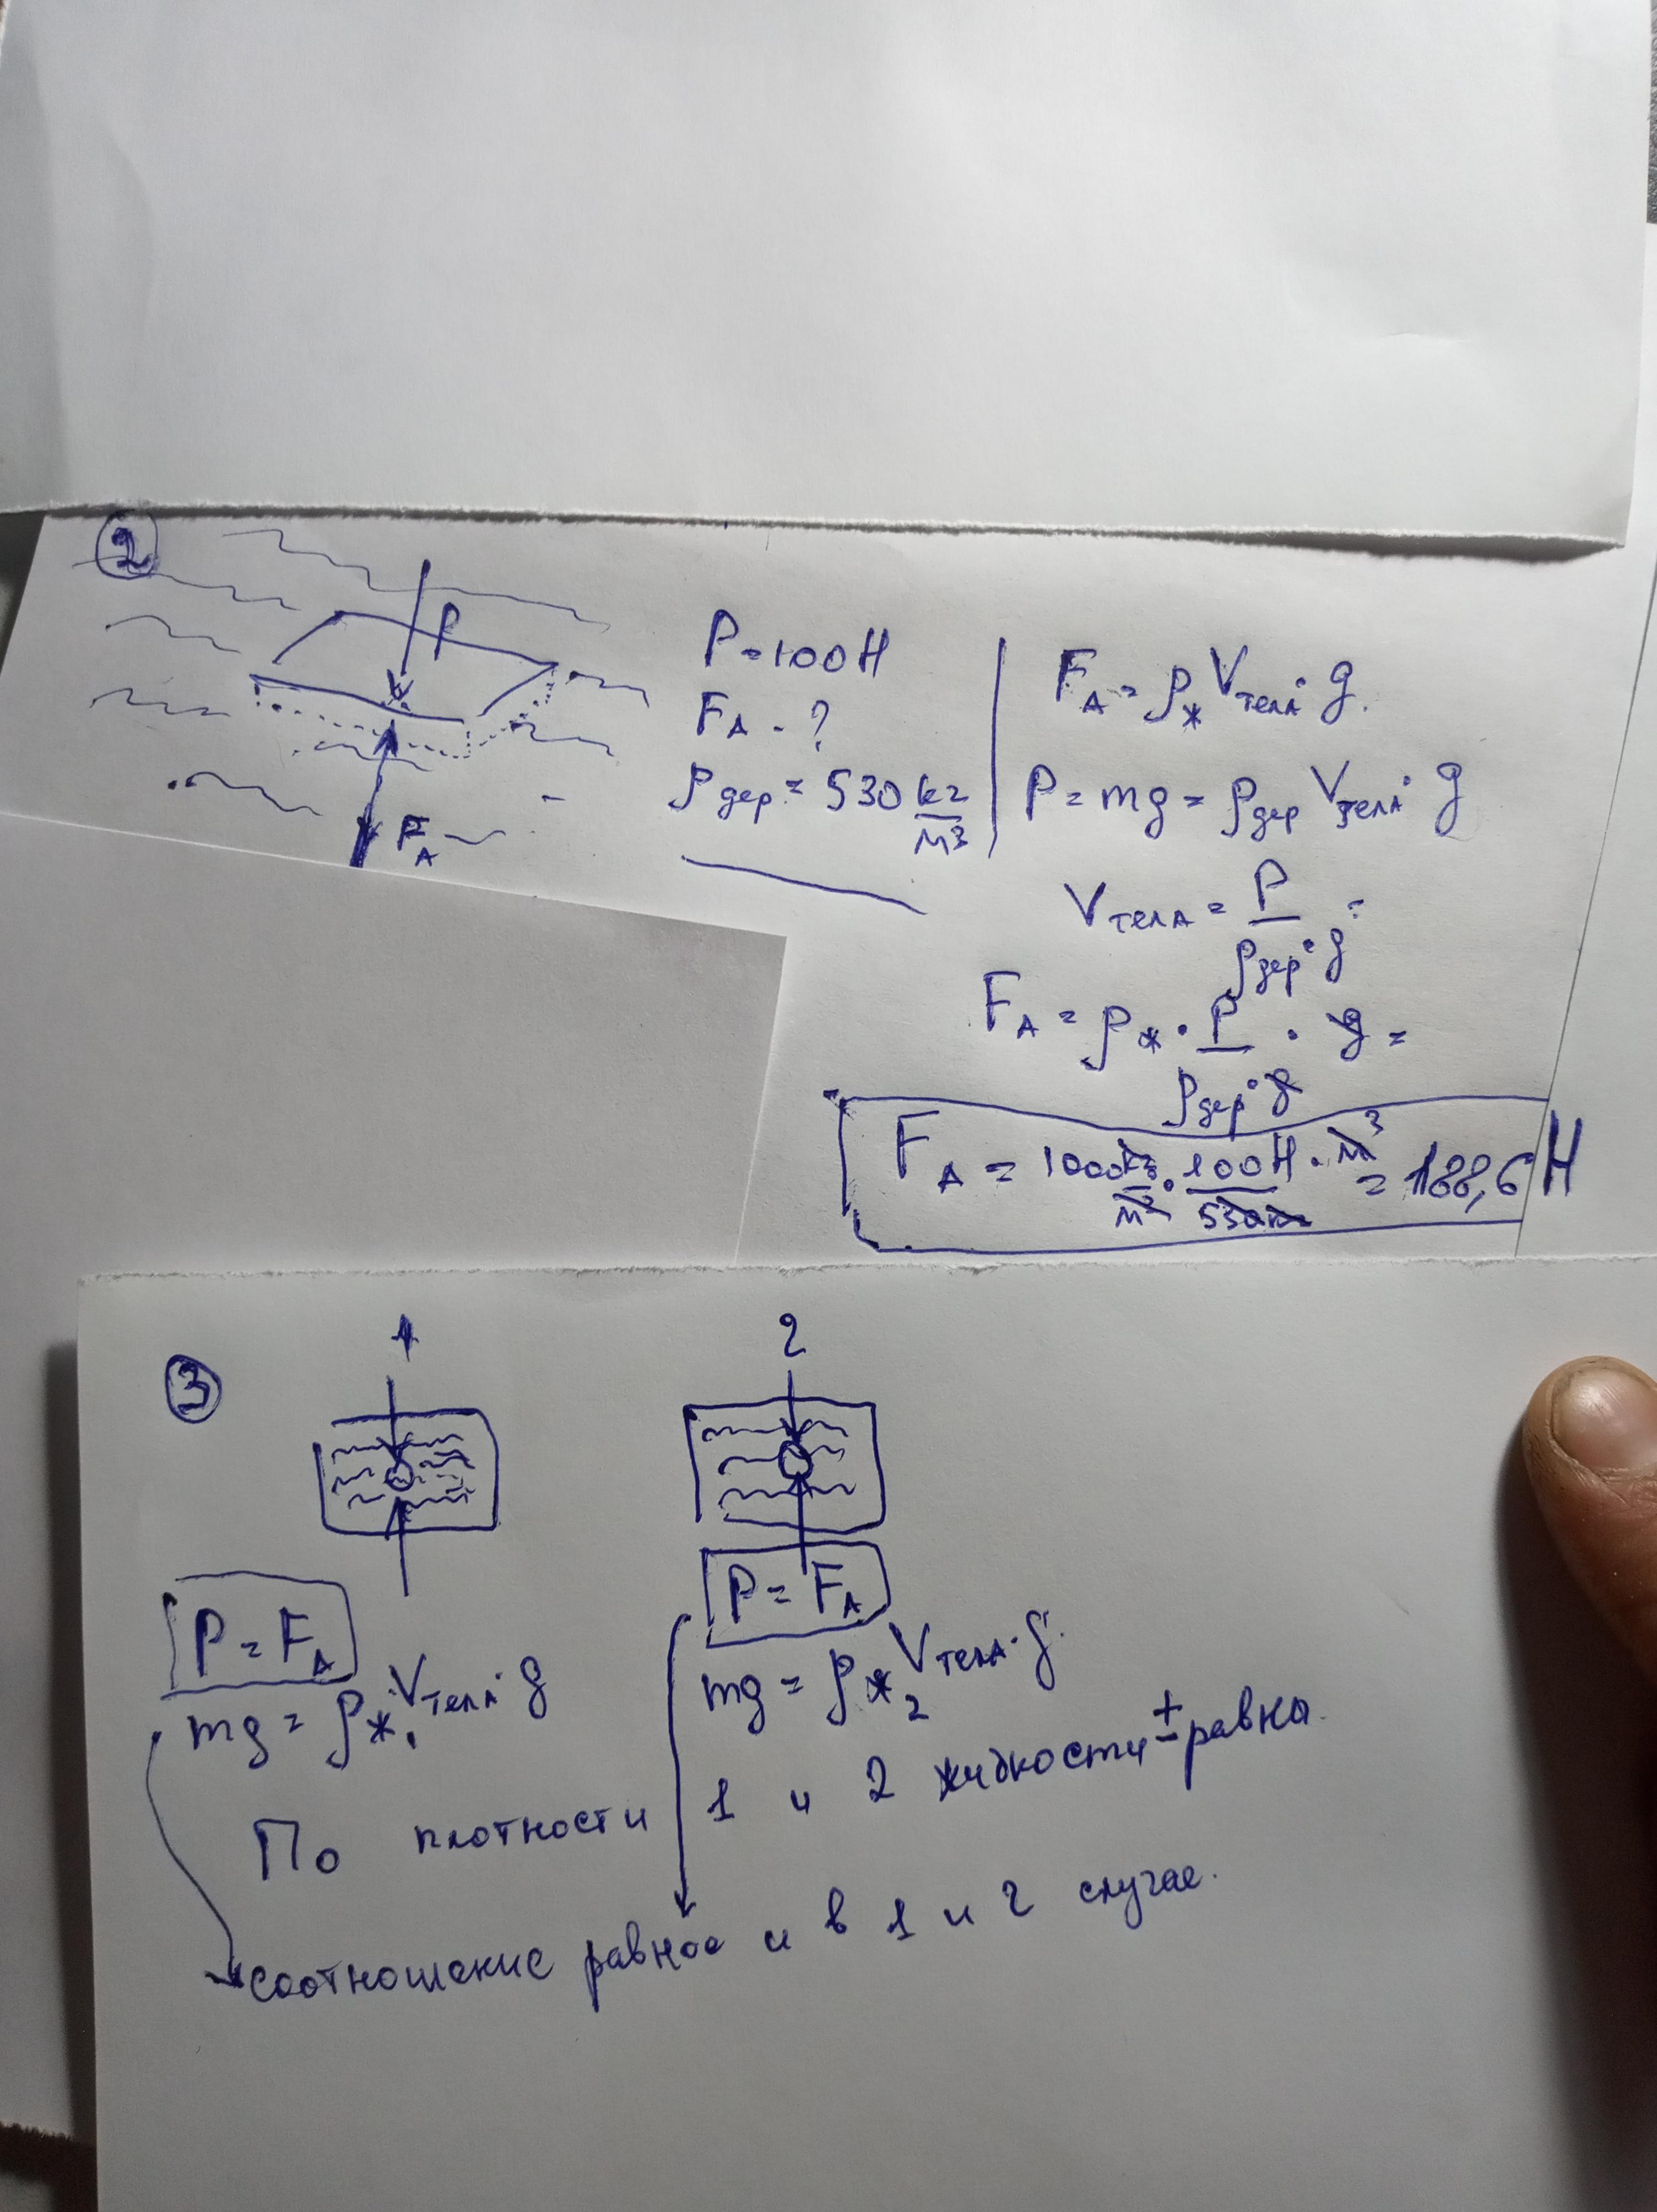 2
P
F_A
P = 100 Н
F_A - ?
ρ_дер = 530 кг/м³
F_A = ρ_ж V_тела · g.
P = mg = ρ_дер V_тела · g
V_тела = P/(ρ_дер · g) =
F_A = ρ_ж · P/(ρ_дер · g) · g =
F_A = 1000 кг/м³ · 100 Н · м³/530 кг = 188,6 Н
3
1
2
P = F_A
P = F_A
mg = ρ_ж₁ · V_тела · g
mg = ρ_ж₂ V_тела · g.
По плотности 1 и 2 жидкости ± равны.
соотношение равное и в 1 и 2 случае.